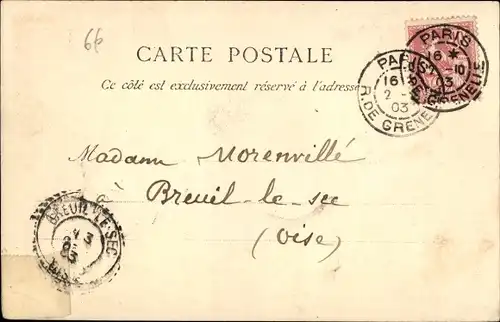 66
CARTE POSTALE
Ce côté est exclusivement réservé à l'adresse
PARIS
16 *
10
03
GRENELLE
PARIS
16
2 -
03
R. DE GRENELLE
Madame Morenvillé
à
Breuil-le-sec
(Oise)
BREUIL-LE-SEC
OISE